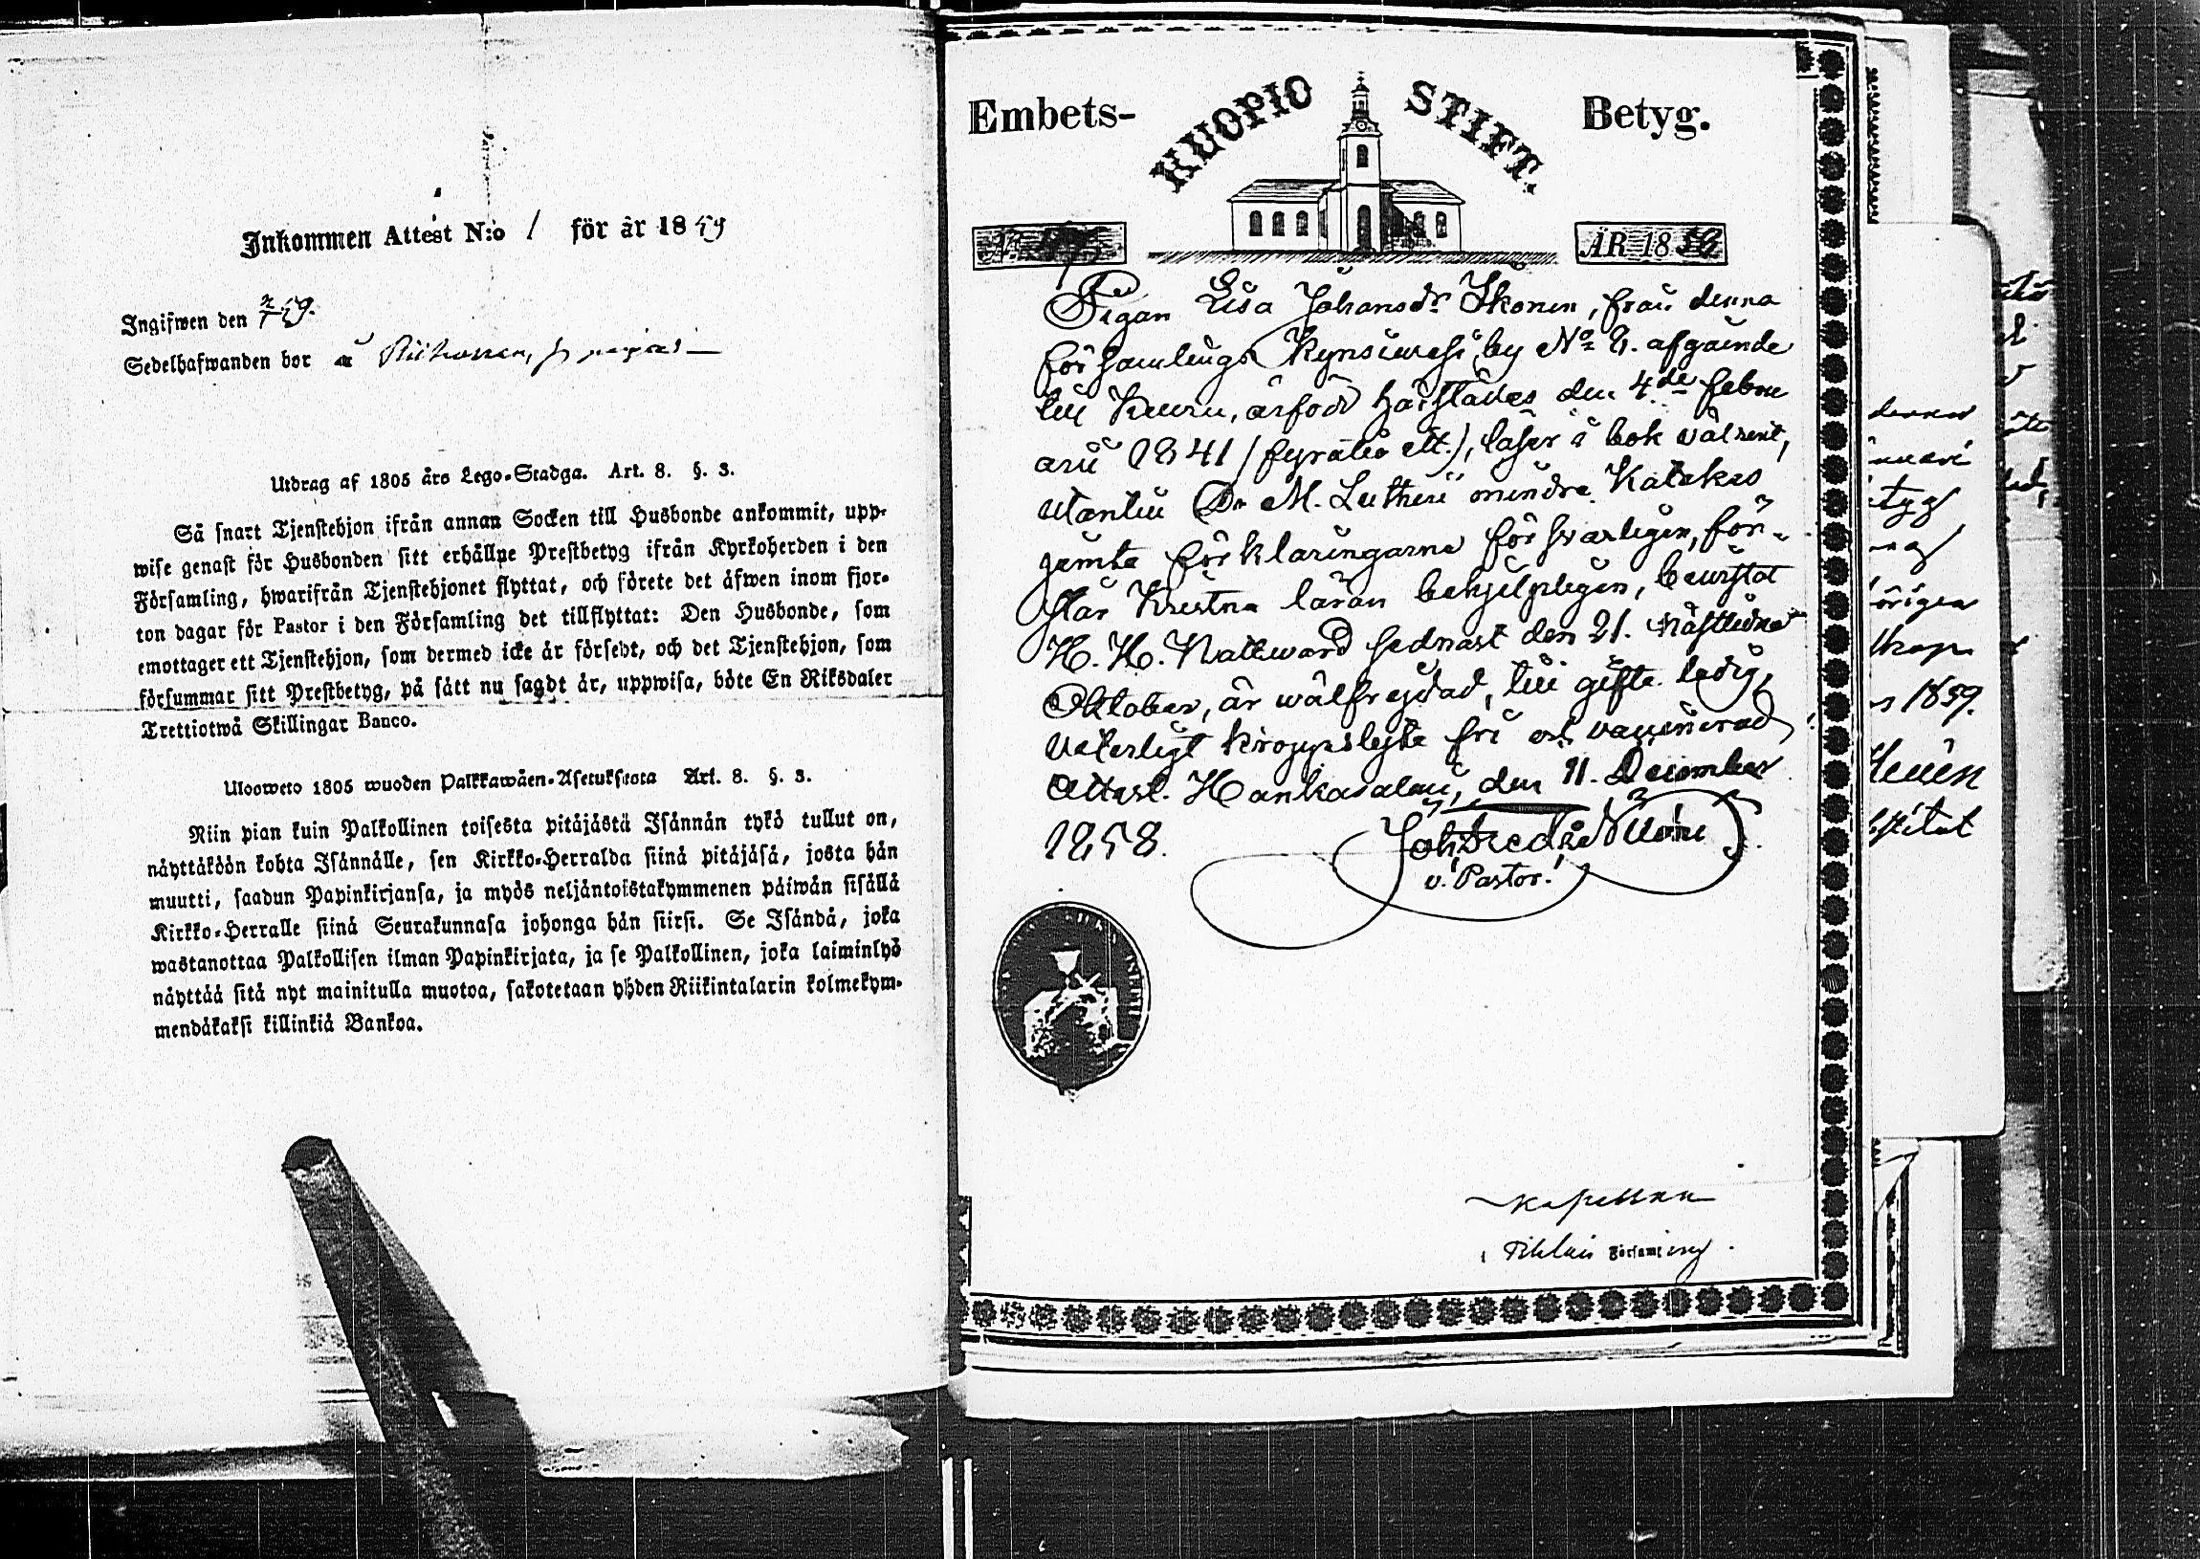 Inkommen Attest N:o 1 för år 1859
Ingifwen den 2/1 59.
Sedelhafwanden bor å
Utdrag af 1805 års Lego-Stadga. Art. 8. §. 3.
Så snart Tjenstehjon ifrån annan Socken till Husbonde ankommit, upp-
wise genast för Husbonden sitt erhållne Prestbetyg ifrån Kyrkoherden i den
Församling, hwarifrån Tjenstehjonet flyttat, och förete det äfwen inom fjor-
ton dagar för Pastor i den Församling det tillflyttat: Den Husbonde, som
emottager ett Tjenstehjon, som dermed icke är försedt, och det Tjenstehjon, som
försummar sitt Prestbetyg, på sätt nu sagdt är, uppwisa, böte En Riksdaler
Trettiotwå Skillingar Banco.
Ulooweto 1805 wuoden Palkkawäen-Asetuksesta Art. 8. §. 3.
Niin pian kuin Palkollinen toisesta pitäjästä Isännän tykö tullut on,
näyttäköön kohta Isännälle, sen Kirkko-Herralda siinä pitäjäsä, josta hän
muutti, saadun Papinkirjansa, ja myös neljäntoistakymmenen päiwän sisällä
Kirkko-Herralle siinä Seurakunnasa johonga hän siirsi. Se Isändä, joka
wastanottaa Palkollisen ilman Papinkirjata, ja se Palkollinen, joka laiminlyö
näyttää sitä nyt mainitulla muotoa, sakotetaan yhden Riikintalarin kolmekym-
mendäkaksi killinkiä Bankoa.
Embets- KUOPIO STIFT. Betyg.
N. ÅR 1858
Pigan Lisa Johansdr Ikonen, från denna
församlings Kynsiwesi by No 8. afgående
till Keuru, är född härstädes den 4.de Febru
arii 1841 (fyratio ett.), läser i bok välrent,
utantill Dr M. Lutheri mindre Katekes
jemte förklaringarne försvarligen, för-
står Kristna läran behjelpligen, bewistat
H. H. Nattward sednast den 21. nästlidne
Oktober, är wälfrejdad, till gifte ledig,
veterligt kroppslyte fri och vaccinerad,
Attest. Hankasalmi, den 11. December
1858.
v. Pastor.
Kapellan
i Pihlais Församling.
denna
nuari
etyg
1859.